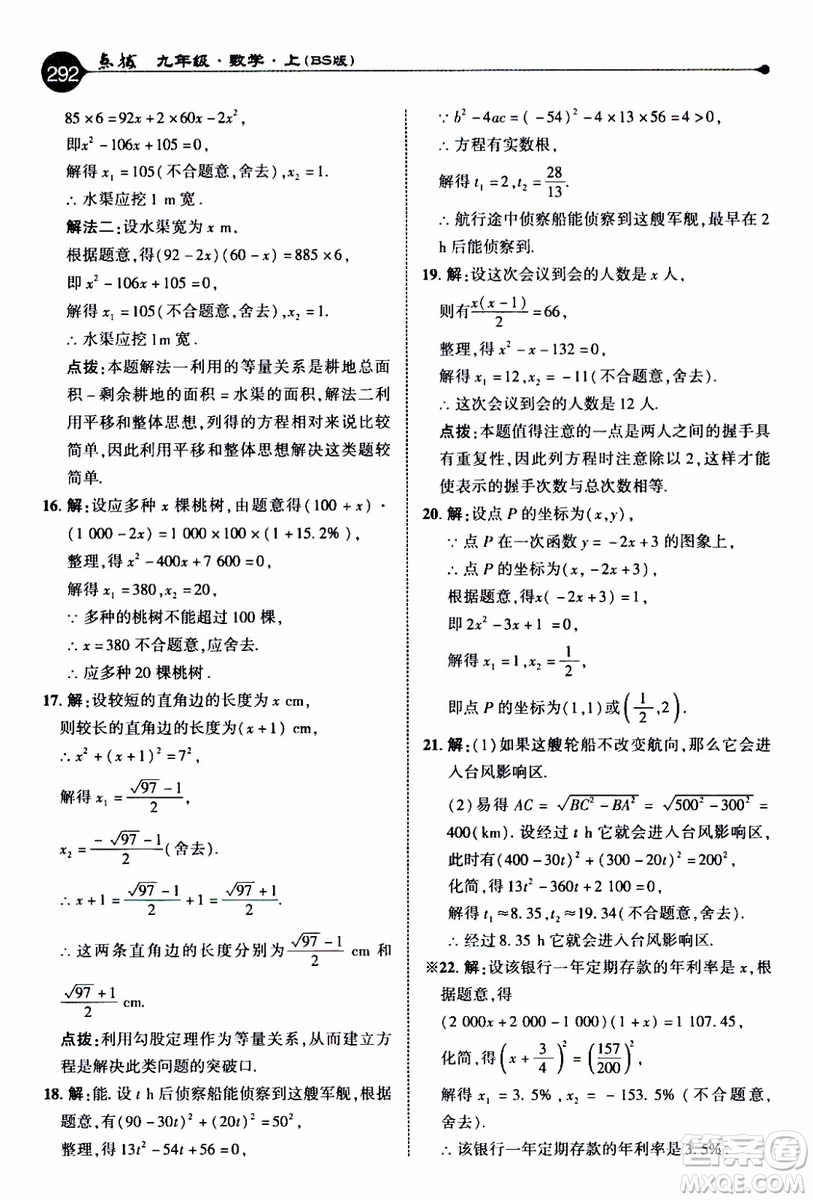 292 点拨 九年级·数学·上(BS版)
85×6=92x+2×60x-2x²,
即x²-106x+105=0,
解得 x₁=105(不合题意,舍去),x₂=1.
∴ 水渠应挖 1 m 宽.
解法二:设水渠宽为 x m,
根据题意,得(92-2x)(60-x)=885×6,
即 x²-106x+105=0,
解得 x₁=105(不合题意,舍去),x₂=1.
∴ 水渠应挖 1m 宽.
点拨:本题解法一利用的等量关系是耕地总面
积-剩余耕地的面积=水渠的面积,解法二利
用平移和整体思想,列得的方程相对来说比较
简单,因此利用平移和整体思想解决这类题较
简单.
16. 解:设应多种 x 棵桃树,由题意得(100+x)·
(1 000-2x)=1 000×100×(1+15.2%),
整理,得 x²-400x+7 600=0,
解得 x₁=380,x₂=20,
∵ 多种的桃树不能超过 100 棵,
∴ x=380 不合题意,应舍去.
∴ 应多种 20 棵桃树.
17. 解:设较短的直角边的长度为 x cm,
则较长的直角边的长度为(x+1) cm,
∴ x²+(x+1)²=7²,
解得 x₁=(√97-1)/2,
x₂=(-√97-1)/2(舍去).
∴ x+1=(√97-1)/2+1=(√97+1)/2.
∴ 这两条直角边的长度分别为(√97-1)/2 cm 和
(√97+1)/2 cm.
点拨:利用勾股定理作为等量关系,从而建立方
程是解决此类问题的突破口.
18. 解:能. 设 t h 后侦察船能侦察到这艘军舰,根据
题意,有(90-30t)²+(20t)²=50²,
整理,得 13t²-54t+56=0,
∵ b²-4ac=(-54)²-4×13×56=4>0,
∴ 方程有实数根,
解得 t₁=2,t₂=28/13.
∴ 航行途中侦察船能侦察到这艘军舰,最早在 2
h 后能侦察到.
19. 解:设这次会议到会的人数是 x 人,
则有x(x-1)/2=66,
整理,得 x²-x-132=0,
解得 x₁=12,x₂=-11(不合题意,舍去).
∴ 这次会议到会的人数是 12 人.
点拨:本题值得注意的一点是两人之间的握手具
有重复性,因此列方程时注意除以 2,这样才能
使表示的握手次数与总次数相等.
20. 解:设点 P 的坐标为(x,y),
∵ 点 P 在一次函数 y=-2x+3 的图象上,
∴ 点 P 的坐标为(x,-2x+3),
根据题意,得x(-2x+3)=1,
即 2x²-3x+1=0,
解得 x₁=1,x₂=1/2,
即点 P 的坐标为(1,1)或(1/2,2).
21. 解:(1)如果这艘轮船不改变航向,那么它会进
入台风影响区.
(2)易得 AC=√(BC²-BA²)=√(500²-300²)=
400(km). 设经过 t h 它就会进入台风影响区,
此时有(400-30t)²+(300-20t)²=200²,
化简,得 13t²-360t+2 100=0,
解得 t₁≈8.35,t₂≈19.34(不合题意,舍去).
∴ 经过 8.35 h 它就会进入台风影响区.
※22. 解:设该银行一年定期存款的年利率是 x,根
据题意,得
(2 000x+2 000-1 000)(1+x)=1 107.45,
化简,得(x+3/4)²=(157/200)²,
解得 x₁=3.5%,x₂=-153.5%(不合题意,
舍去).
∴ 该银行一年定期存款的年利率是 3.5%.